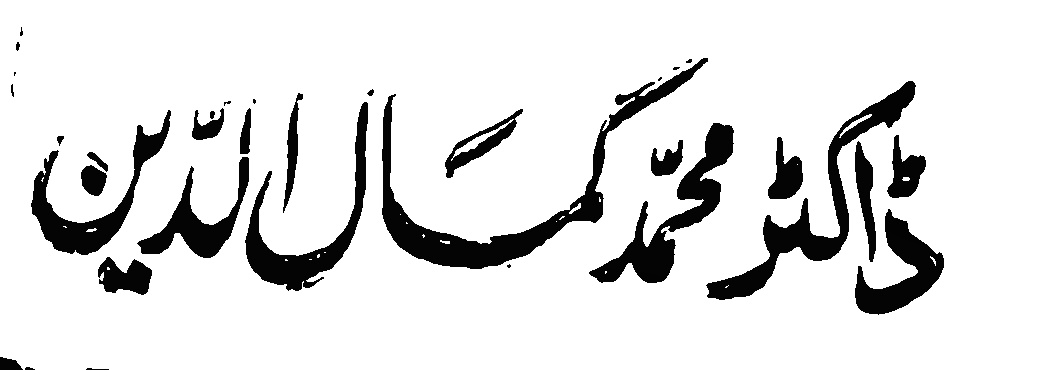 ڈاکٹر محمّد کمال الدّین